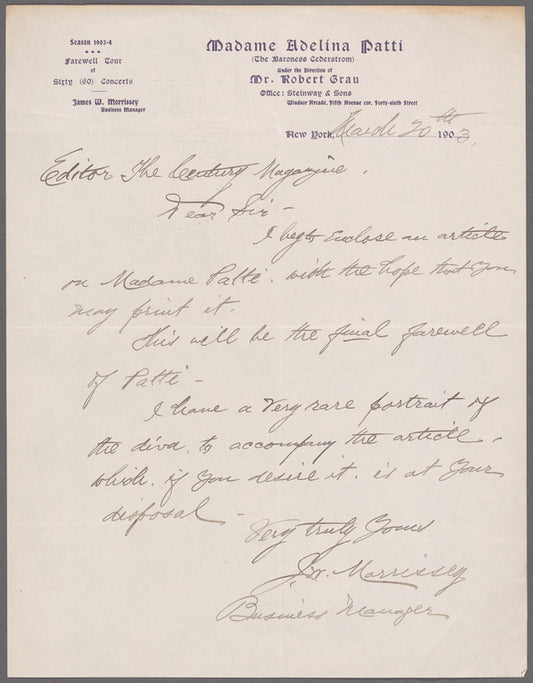 Season 1903-4
Farewell Tour
of
Sixty (60) Concerts
James W. Morrissey
Business Manager
Madame Adelina Patti
(The Baroness Cederstrom)
Under the Direction of
Mr. Robert Grau
Office: Steinway & Sons
Windsor Arcade, Fifth Avenue cor. Forty-sixth Street
New York, March 20th 1903.
Editor The Century Magazine.
Dear Sir -
I beg to enclose an article
on Madame Patti. with the hope that you
may print it.
This will be the final farewell
of Patti -
I have a very rare portrait of
the diva. to accompany the article,
which. if you desire it. is at your
disposal -
Very truly yours
J.W. Morrissey
Business Manager